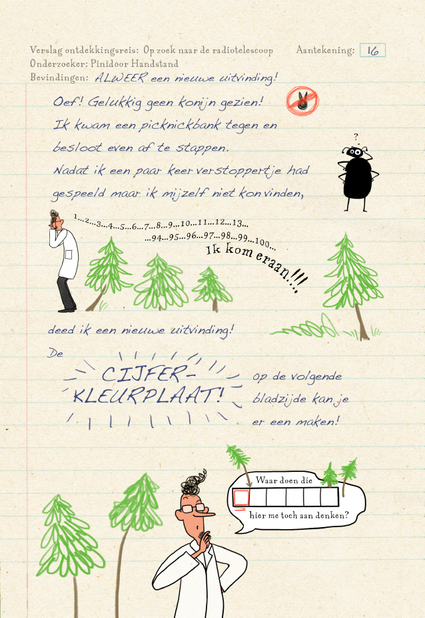 Verslag ontdekkingsreis: Op zoek naar de radiotelescoop Aantekening: 16
Onderzoeker: Pinidoor Handstand
Bevindingen: ALWEER een nieuwe uitvinding!
Oef! Gelukkig geen konijn gezien!
Ik kwam een picknickbank tegen en
besloot even af te stappen.
?
Nadat ik een paar keer verstoppertje had
gespeeld maar ik mijzelf niet kon vinden,
1...2...3...4...5...6...7...8...9...10...11...12...13...
...94...95...96...97...98...99...100...
Ik kom eraan!!!
deed ik een nieuwe uitvinding!
De
CIJFER-
KLEURPLAAT!
op de volgende
bladzijde kan je
er een maken!
Waar doen die
hier me toch aan denken?